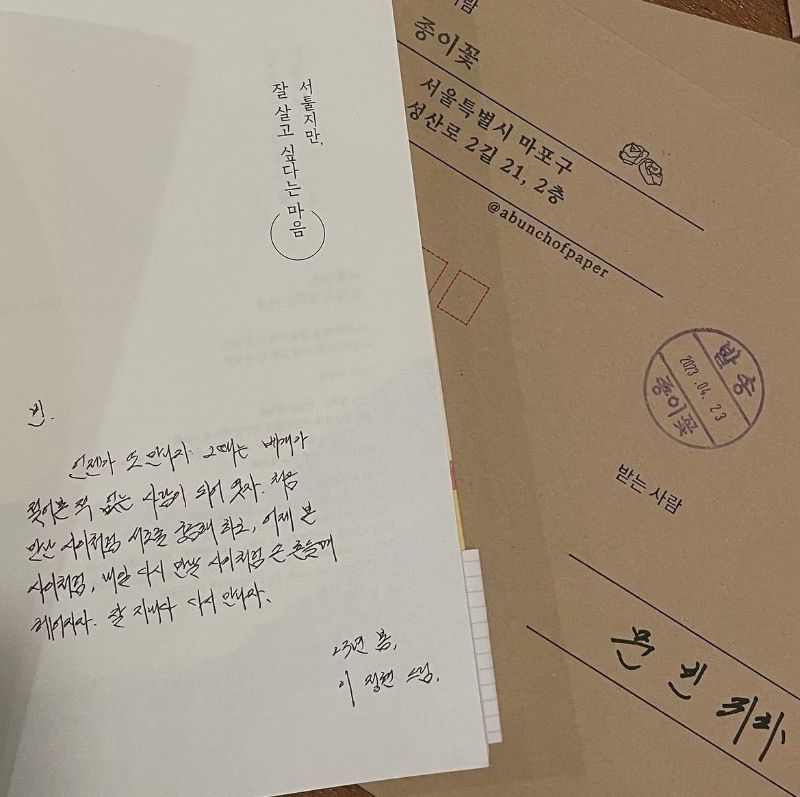 서툴지만,
잘 살고 싶다는 마음
빈.
언젠가 또 만나자. 그때는 베개가
젖어본 적 없는 사람이 되어 웃자. 처음
만난 사이처럼 서로를 궁금해 하고, 어제 본
사이처럼, 내일 다시 만날 사이처럼 손 흔들며
헤어지자. 잘 지내다 다시 만나자.
23년 봄,
이 정현 드림.
사람
종이꽃
서울특별시 마포구
성산로 2길 21, 2층
@abunchofpaper
발송
2023.04.23
종이꽃
받는 사람
문 빈 귀하